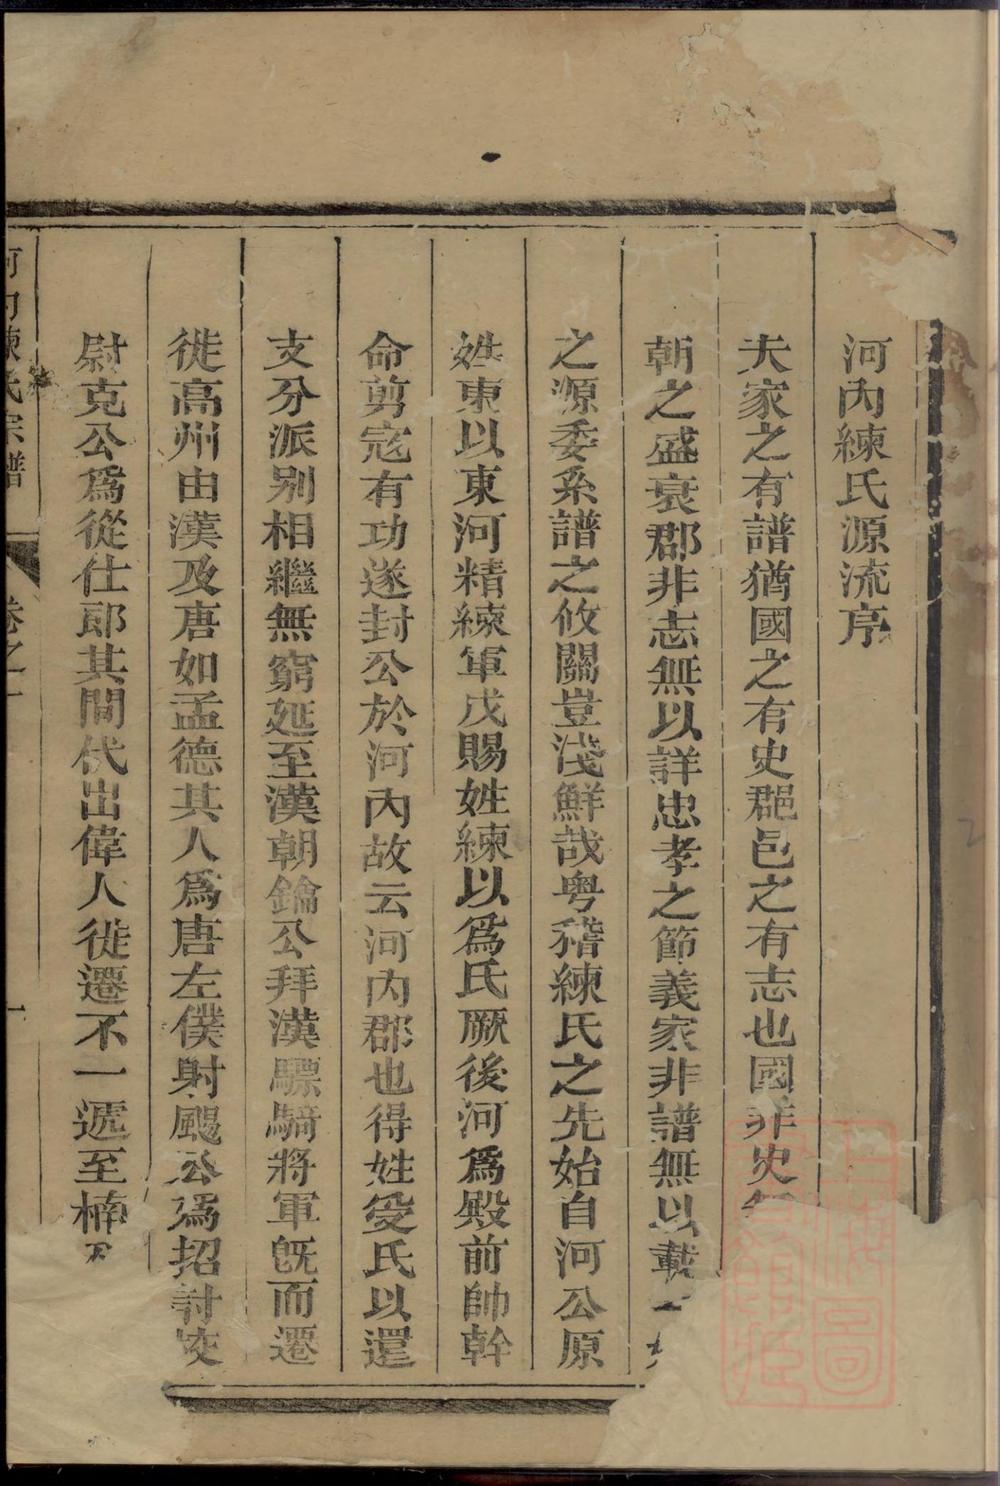 河內練氏源流序
夫家之有譜猶國之有史郡邑之有志也國非史
朝之盛衰郡非志無以詳忠孝之節義家非譜無以載
之源委系譜之攸關豈淺鮮哉粵稽練氏之先始自河公原
姓東以東河精練軍戊賜姓練以爲氏厥後河爲殿前帥幹
命剪寇有功遂封公於河內故云河內郡也得姓受氏以還
支分派别相繼無窮延至漢朝鑰公拜漢驃騎將軍旣而遷
徙高州由漢及唐如孟德其人爲唐左僕射颺公爲招討校
尉克公爲從仕郎其間代出偉人徙遷不一遞至楠
河內練氏宗譜 卷之一 一
上海圖書館藏